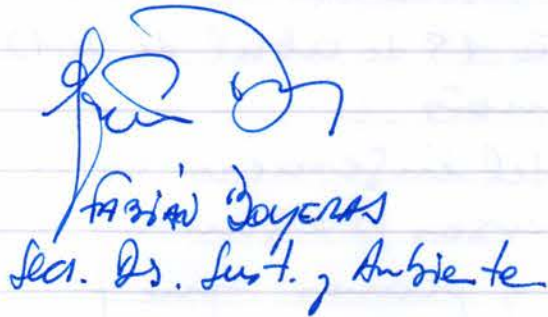 FABIÁN BOYERAS
Secr. Ds. Sust. y Ambiente